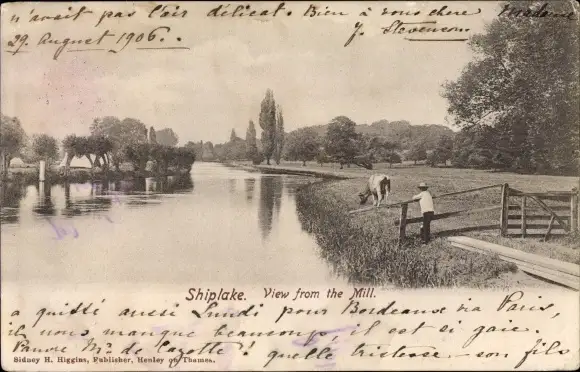 n'avait pas l'air délicat. Bien à vous chere Madame
29. August 1906. J. Stevenson
Shiplake. View from the Mill.
a quitté aussi Lundi pour Bordeaux via Paris,
il nous manque beaucoup, il est si gaie.
Pauvre Mr. de Cazotte! quelle tristesse - son fils
Sidney H. Higgins, Publisher, Henley on Thames.